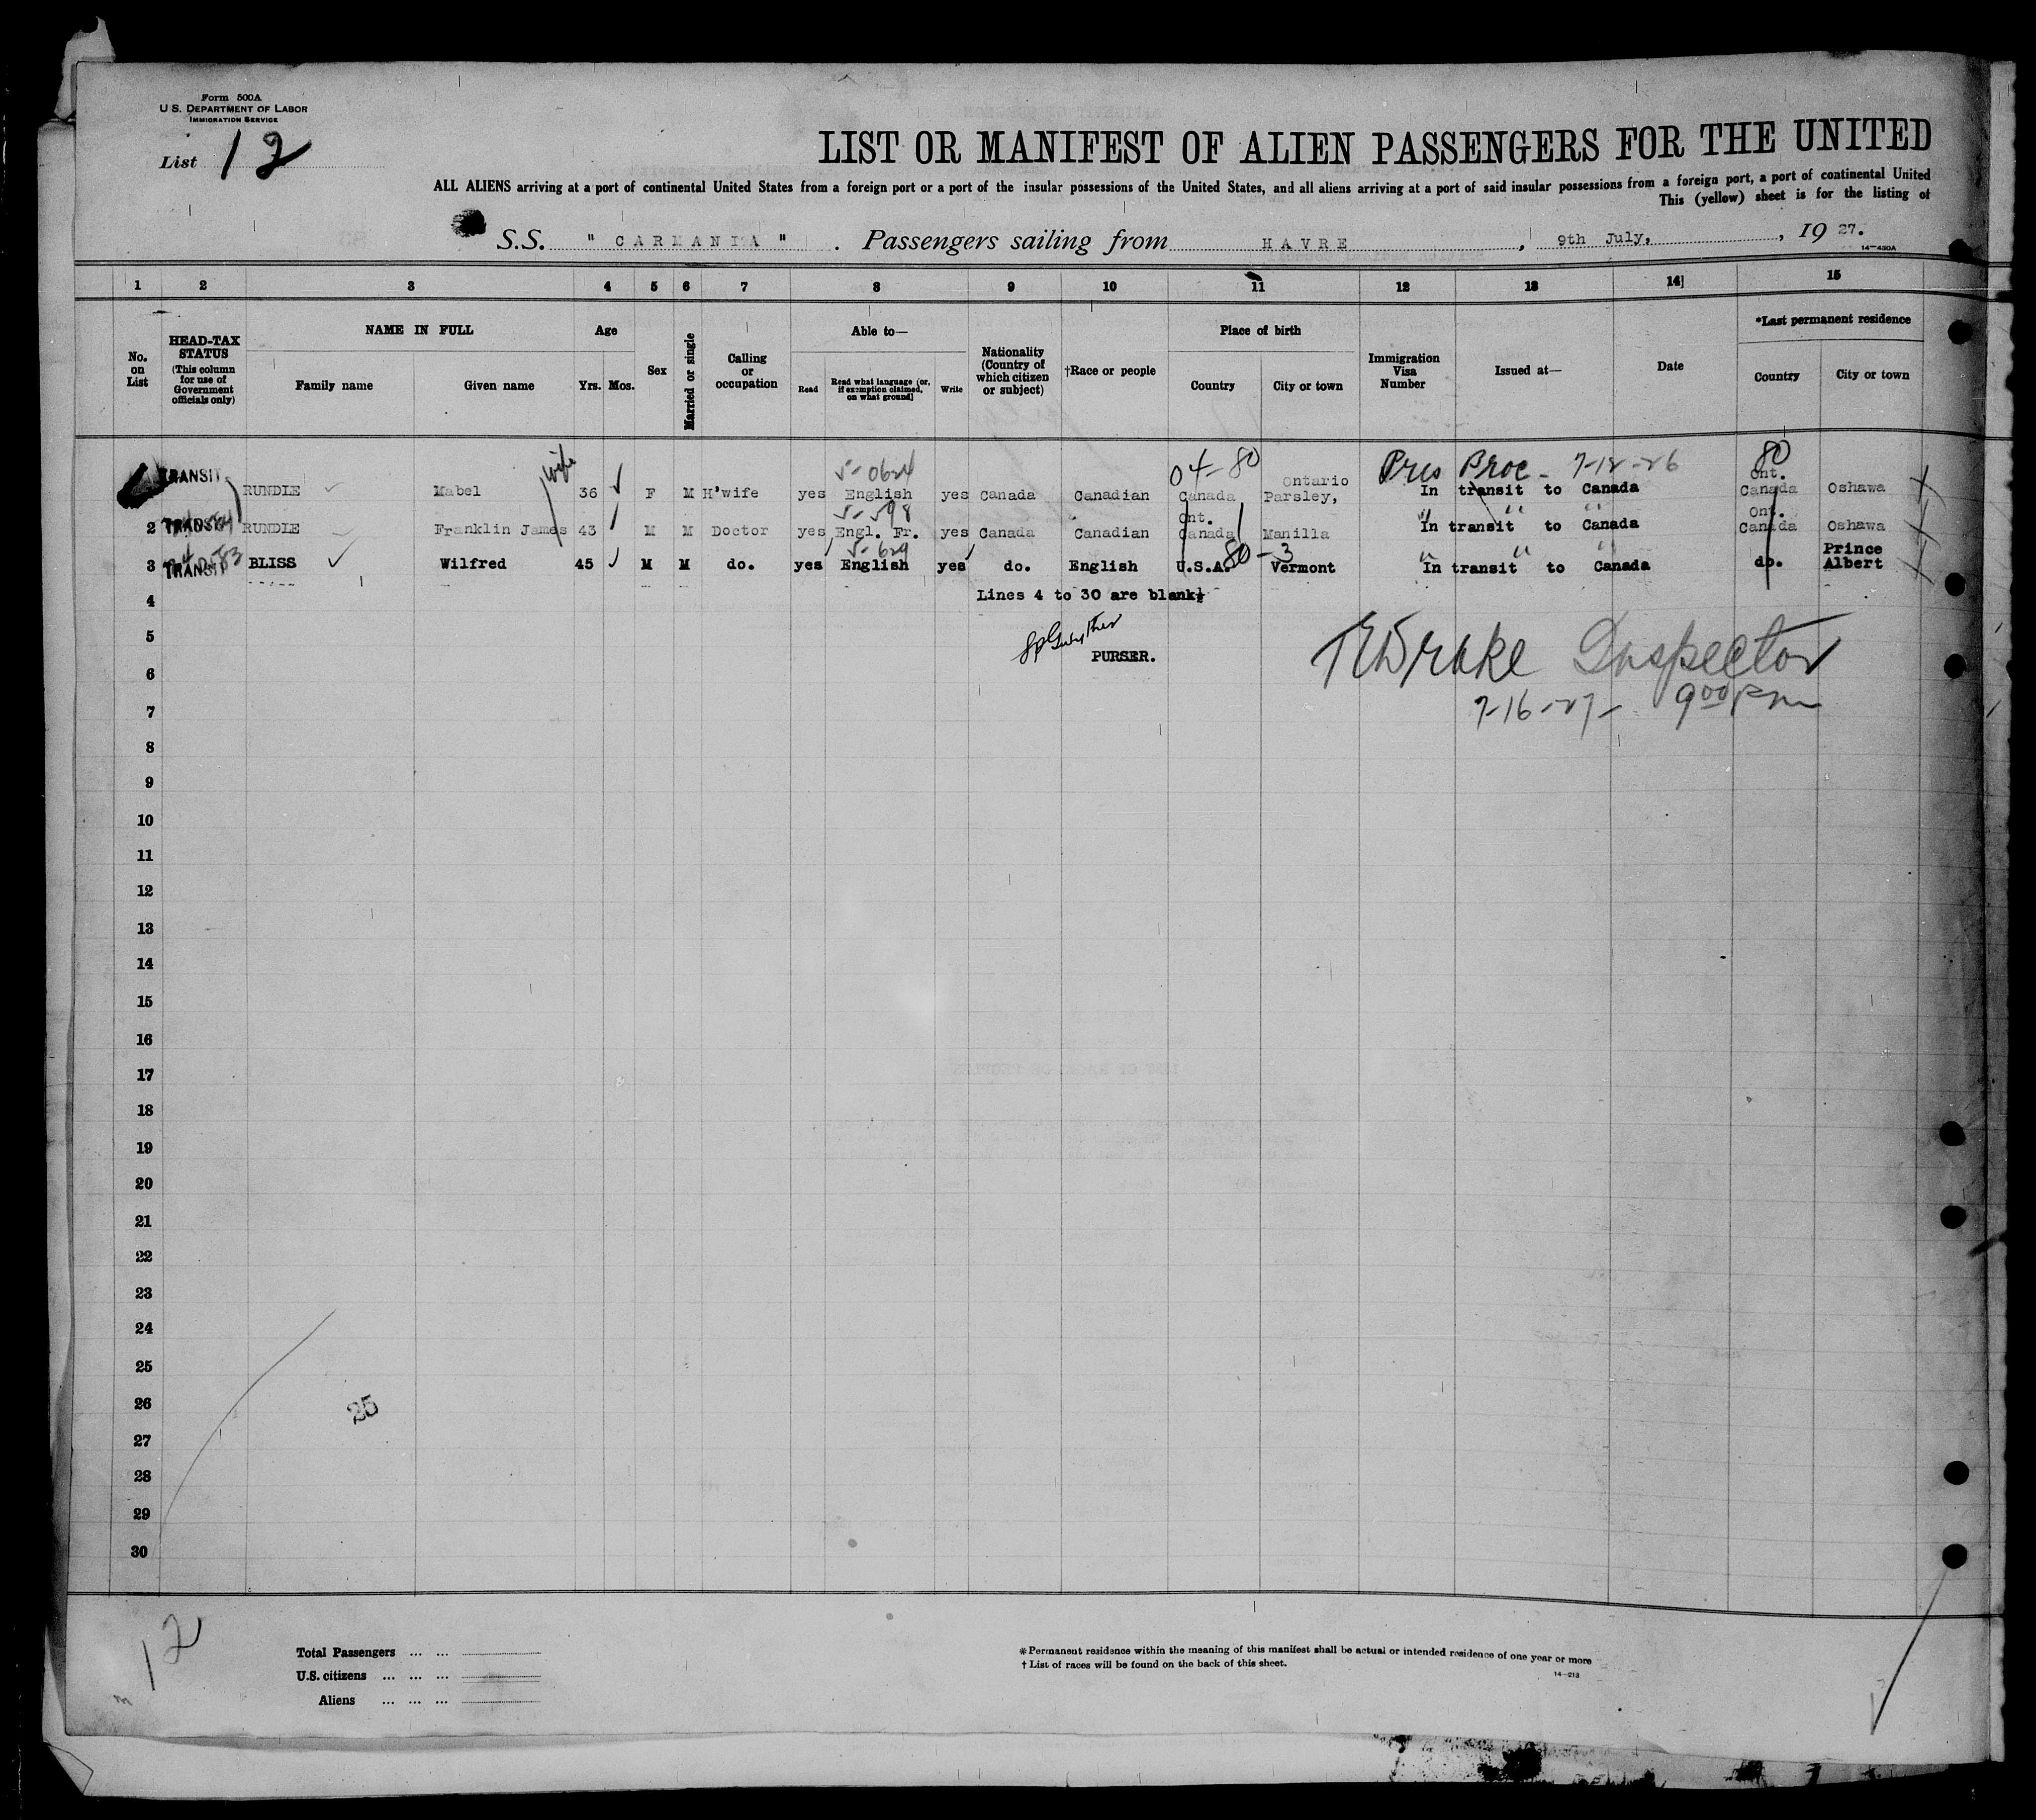 Form 500A
U.S. DEPARTMENT OF LABOR
IMMIGRATION SERVICE
List 12
LIST OR MANIFEST OF ALIEN PASSENGERS FOR THE UNITED
ALL ALIENS arriving at a port of continental United States from a foreign port or a port of the insular possessions of the United States, and all aliens arriving at a port of said insular possessions from a foreign port, a port of continental United
This (yellow) sheet is for the listing of
S.S. " CARMANIA " . Passengers sailing from HAVRE , 9th July, , 19 27.
14-430A
1 2 3 4 5 6 7 8 9 10 11 12 13 14 15
No. on List
HEAD-TAX STATUS (This column for use of Government officials only)
NAME IN FULL
Family name Given name
Age
Yrs. Mos.
Sex
Married or single
Calling or occupation
Able to—
Read Read what language (or, if exemption claimed, on what ground) Write
Nationality (Country of which citizen or subject)
†Race or people
Place of birth
Country City or town
Immigration Visa Number
Issued at—
Date
*Last permanent residence
Country City or town
wife 5-0624 04-80 Pres Proc - 7-12-26 80
TRANSIT Ontario Ont.
RUNDLE Mabel 36 F M H'wife yes English yes Canada Canadian Canada Parsley, In transit to Canada Canada Oshawa
5-598 Ont. " " " Ont.
2 TRANSIT RUNDLE Franklin James 43 M M Doctor yes Engl. Fr. yes Canada Canadian Canada Manilla In transit to Canada Canada Oshawa
5-624 80-3 " " " Prince
3 TRANSIT BLISS Wilfred 45 M M do. yes English yes do. English U.S.A. Vermont In transit to Canada do. Albert
4 Lines 4 to 30 are blank
5
PURSER.
Inspector
6
7-16-27- 9 00 pm
7
8
9
10
11
12
13
14
15
16
17
18
19
20
21
22
23
24
25
26
25
27
28
29
30
12
Total Passengers ... ...
U.S. citizens ... ... ...
Aliens ... ... ...
*Permanent residence within the meaning of this manifest shall be actual or intended residence of one year or more
† List of races will be found on the back of this sheet.
14-213